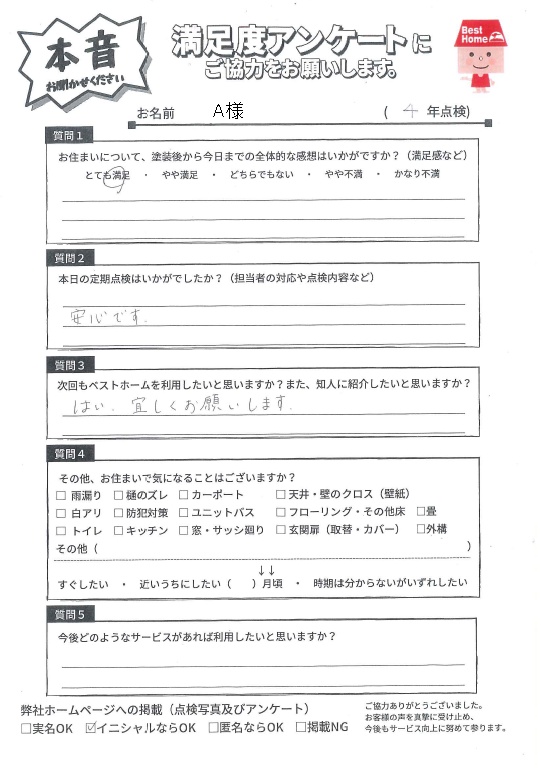 本音
お聞かせください
満足度アンケートに
ご協力をお願いします。
Best Home
お名前 A様 ( 4 年点検)
質問1
お住まいについて、塗装後から今日までの全体的な感想はいかがですか？（満足感など）
とても満足 ・ やや満足 ・ どちらでもない ・ やや不満 ・ かなり不満
質問2
本日の定期点検はいかがでしたか？（担当者の対応や点検内容など）
安心です.
質問3
次回もベストホームを利用したいと思いますか？また、知人に紹介したいと思いますか？
はい. 宜しくお願いします.
質問4
その他、お住まいで気になることはございますか？
□ 雨漏り □ 樋のズレ □ カーポート □ 天井・壁のクロス（壁紙）
□ 白アリ □ 防犯対策 □ ユニットバス □ フローリング・その他床 □畳
□ トイレ □ キッチン □ 窓・サッシ廻り □ 玄関扉（取替・カバー） □外構
その他（ ）
↓↓
すぐしたい ・ 近いうちにしたい（ ）月頃 ・ 時期は分からないがいずれしたい
質問5
今後どのようなサービスがあれば利用したいと思いますか？
弊社ホームページへの掲載（点検写真及びアンケート）
□実名OK ☑イニシャルならOK □匿名ならOK □掲載NG
ご協力ありがとうございました。
お客様の声を真摯に受け止め、
今後もサービス向上に努めて参ります。